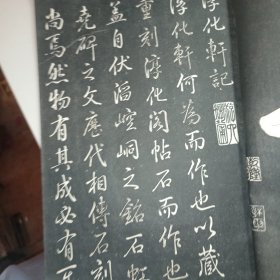 淳化軒記
淳化軒何為而作也以藏
重刻淳化閣帖石而作也
蓋自伏羲崆峒之銘石虹
堯碑之文應代相傳石刻
尚焉然物有其成必有